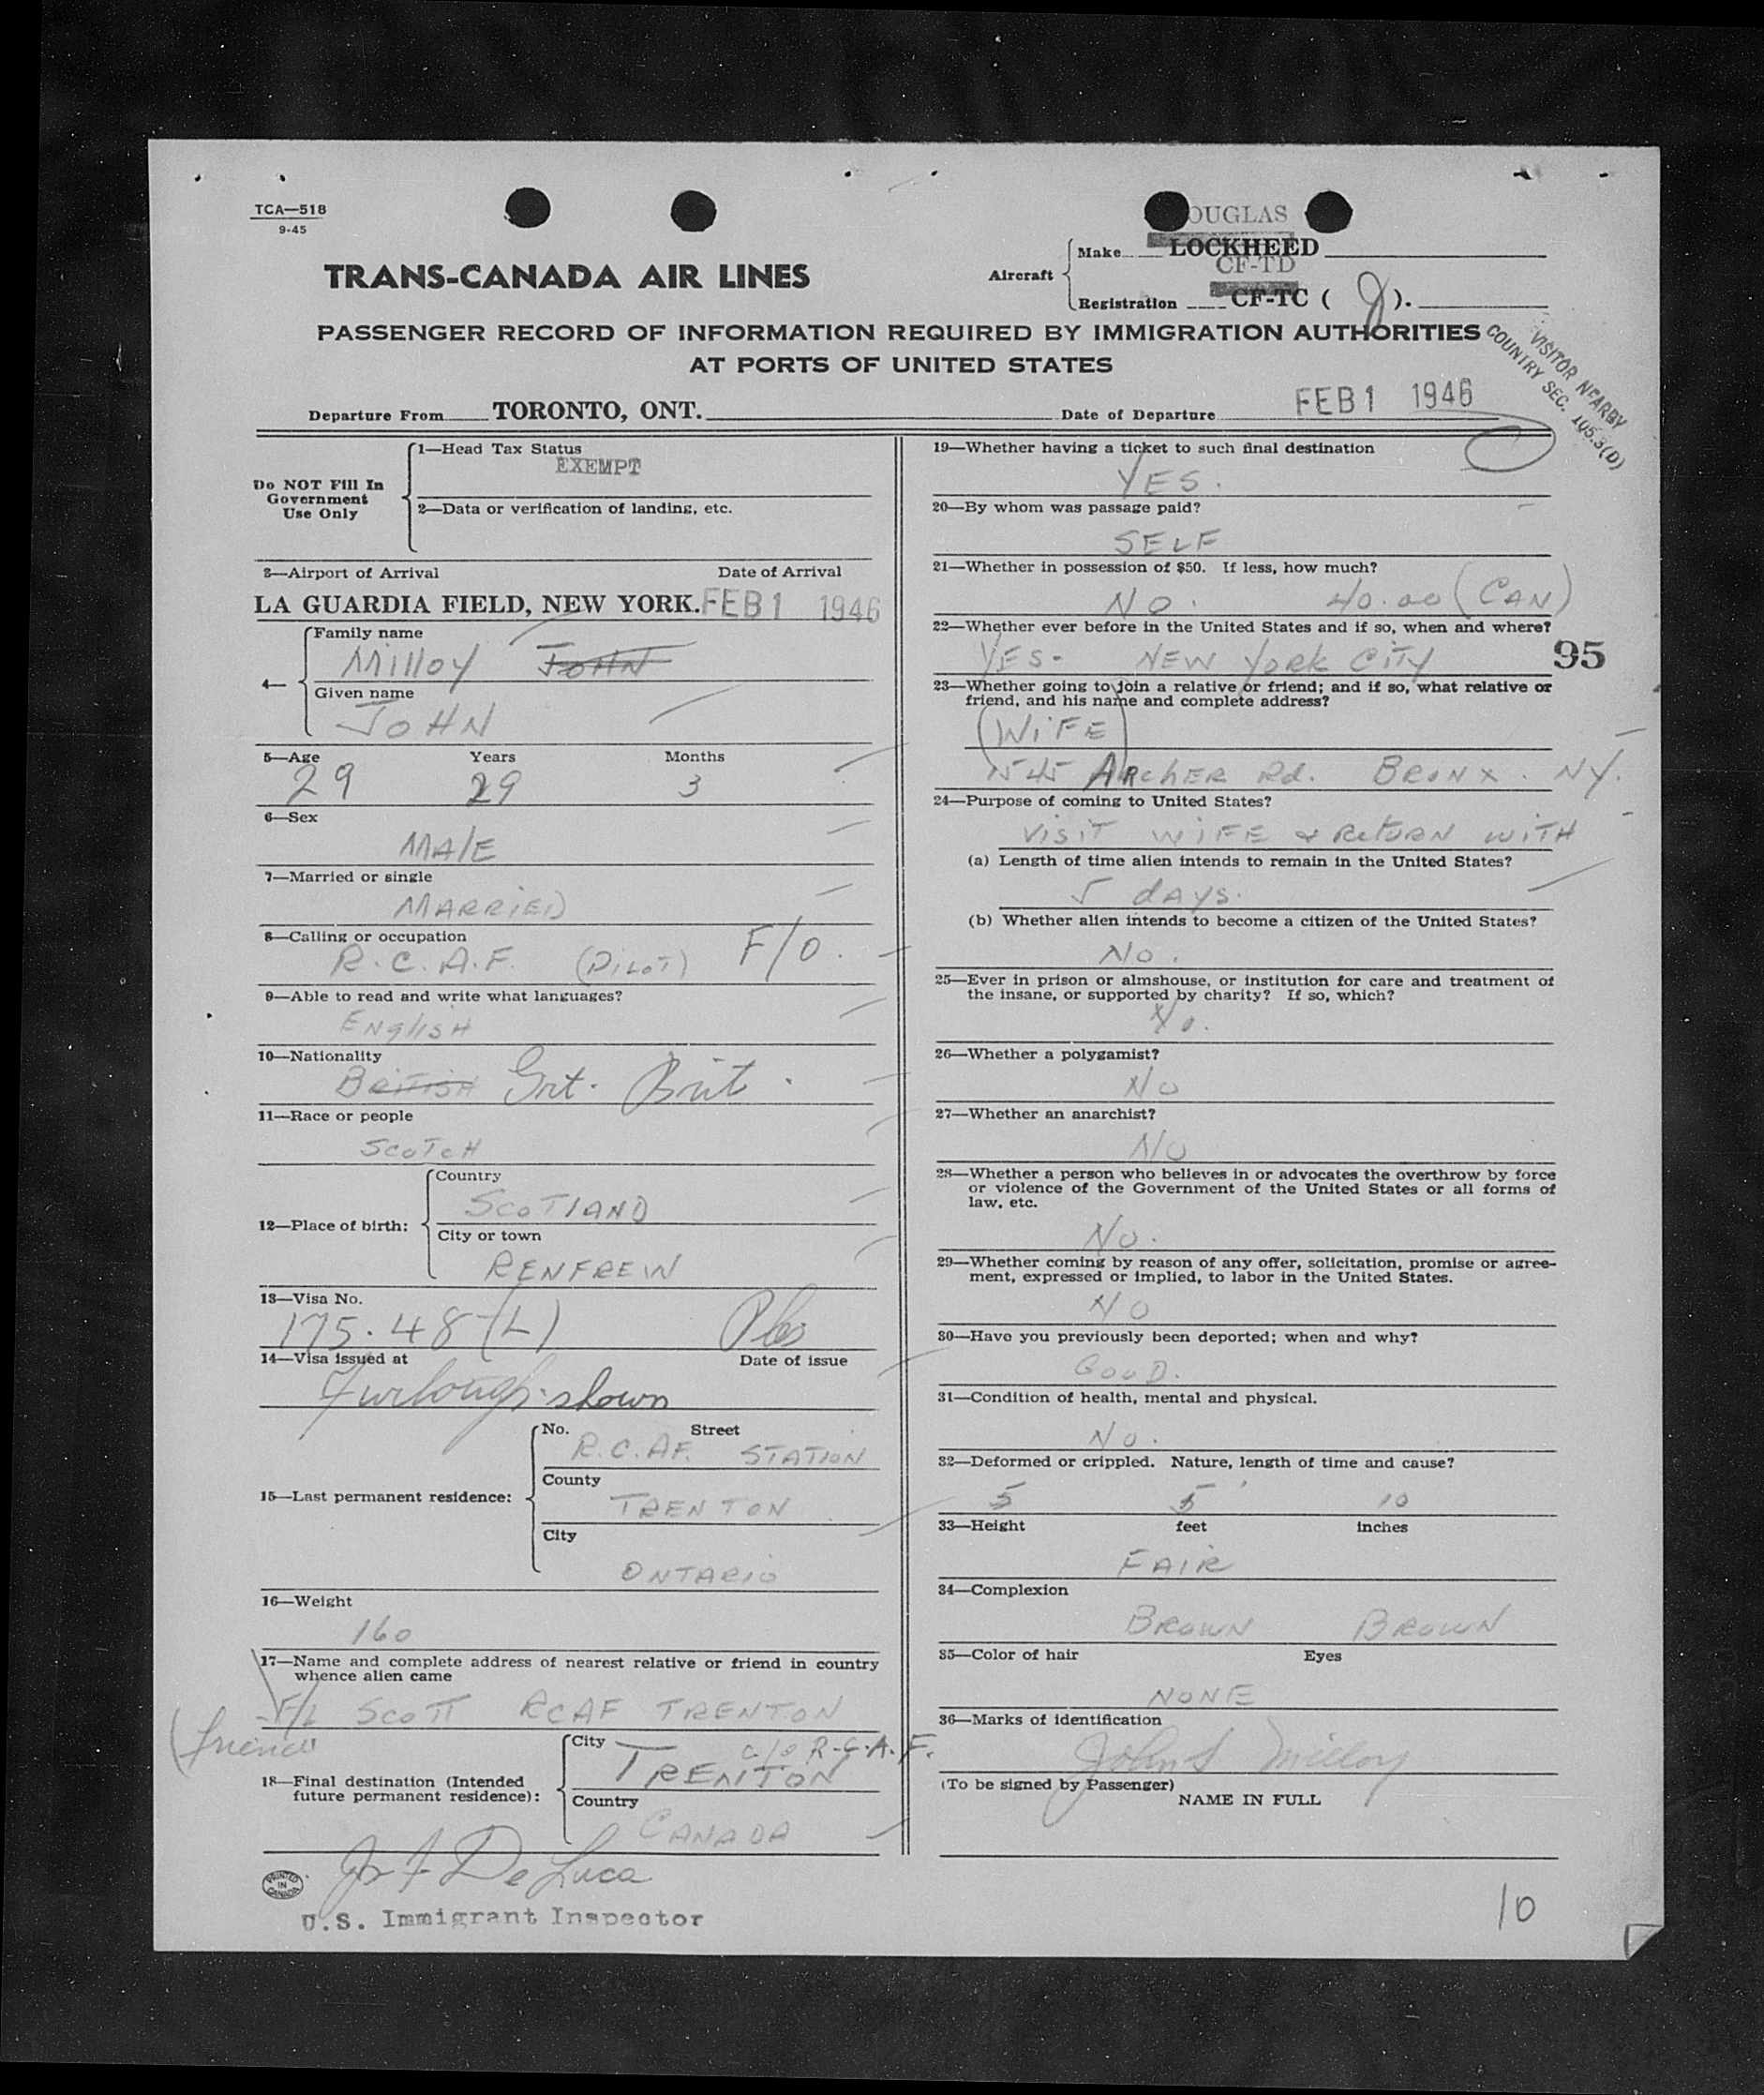 TCA—518
9-45
OUGLAS
Aircraft
Make LOCKHEED
CF-TD
Registration CF-TC ( J ).
TRANS-CANADA AIR LINES
PASSENGER RECORD OF INFORMATION REQUIRED BY IMMIGRATION AUTHORITIES
AT PORTS OF UNITED STATES
VISITOR NEARBY
COUNTRY SEC. 105.3(D)
Departure From TORONTO, ONT. Date of Departure FEB 1 1946
Do NOT Fill In
Government
Use Only
1—Head Tax Status
EXEMPT
2—Data or verification of landing, etc.
3—Airport of Arrival Date of Arrival
LA GUARDIA FIELD, NEW YORK. FEB 1 1946
4—
Family name
Milloy JOHN
Given name
JOHN
5—Age Years Months
29 29 3
6—Sex
MAlE
7—Married or single
MARRiED
8—Calling or occupation
R.C.A.F. (PiLoT) F/O.
9—Able to read and write what languages?
ENgliSH
10—Nationality
BRiTiSH Grt. Brit.
11—Race or people
SCOTCH
12—Place of birth:
Country
SCOTlAND
City or town
RENFREW
13—Visa No.
175.48(L)
14—Visa issued at Date of issue
Furlough shown
15—Last permanent residence:
No. Street
R.C.AF. STATION
County
TRENTON
City
ONTARIO
16—Weight
160
17—Name and complete address of nearest relative or friend in country
whence alien came
F/L SCOTT RCAF TRENTON
(friend
18—Final destination (Intended
future permanent residence):
City c/o R.C.A.F.
TRENTON
Country
CANADA
De Luca
PRINTED
IN
CANADA
U.S. Immigrant Inspector
19—Whether having a ticket to such final destination
YES.
20—By whom was passage paid?
SELF
21—Whether in possession of $50. If less, how much?
NO. 40.00 (CAN)
22—Whether ever before in the United States and if so, when and where?
YES- NEW York CiTY
95
23—Whether going to join a relative or friend; and if so, what relative or
friend, and his name and complete address?
(WiFE)
545 ARchER Rd. BRONX. NY.
24—Purpose of coming to United States?
ViSiT WiFE & RETURN WiTH
(a) Length of time alien intends to remain in the United States?
5 dAYS.
(b) Whether alien intends to become a citizen of the United States?
No.
25—Ever in prison or almshouse, or institution for care and treatment of
the insane, or supported by charity? If so, which?
No.
26—Whether a polygamist?
No
27—Whether an anarchist?
NO
28—Whether a person who believes in or advocates the overthrow by force
or violence of the Government of the United States or all forms of
law, etc.
No.
29—Whether coming by reason of any offer, solicitation, promise or agree-
ment, expressed or implied, to labor in the United States.
NO
30—Have you previously been deported; when and why?
GOOD.
31—Condition of health, mental and physical.
No.
32—Deformed or crippled. Nature, length of time and cause?
5 5' 10
33—Height feet inches
FAIR
34—Complexion
BROWN BROWN
35—Color of hair Eyes
NONE
36—Marks of identification
John S Milloy
(To be signed by Passenger)
NAME IN FULL
10